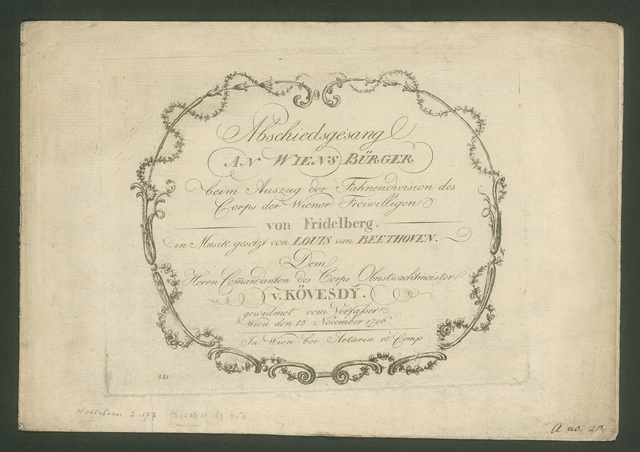 Abschiedsgesang
AN WIENS BÜRGER
beim Auszug der Fahnendivision des
Corps der Wiener Freiwilligen
von Fridelberg.
in Musik gesetzt von LOUIS van BEETHOVEN.
Dem
Herrn Comandanten des Corps Obristwachtmeister
v. KÖVESDY.
gewidmet vom Verfasser
Wien den 15 November 1796
In Wien bei Artaria et Comp
A no.